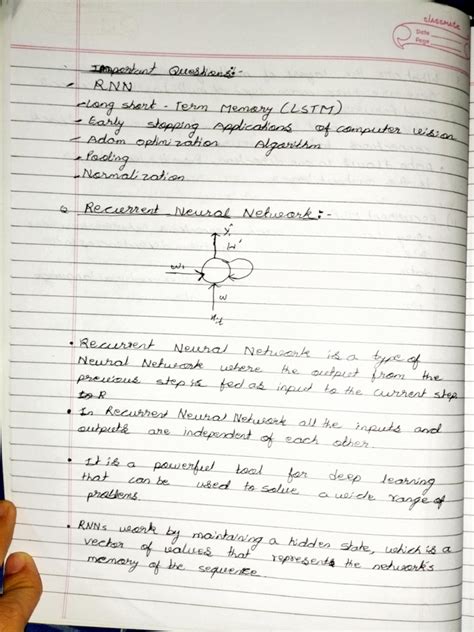 classmate
Date
Page
Important Questions:-
- RNN
- Long short - Term Memory (LSTM)
- Early stopping Applications of computer vision
- Adam optimization Algorithm
- Pooling
- Normalization
Recurrent Neural Network:-
Y
W'
W
• Recurrent Neural Network is a type of
Neural Network where the output from the
previous step is fed as input to the current step
• In Recurrent Neural Network all the inputs and
outputs are independent of each other.
• It is a powerful tool for deep learning
that can be used to solve a wide range of
problems.
• RNNs work by maintaining a hidden state, which is a
vector of values that represents the network's
memory of the sequence.